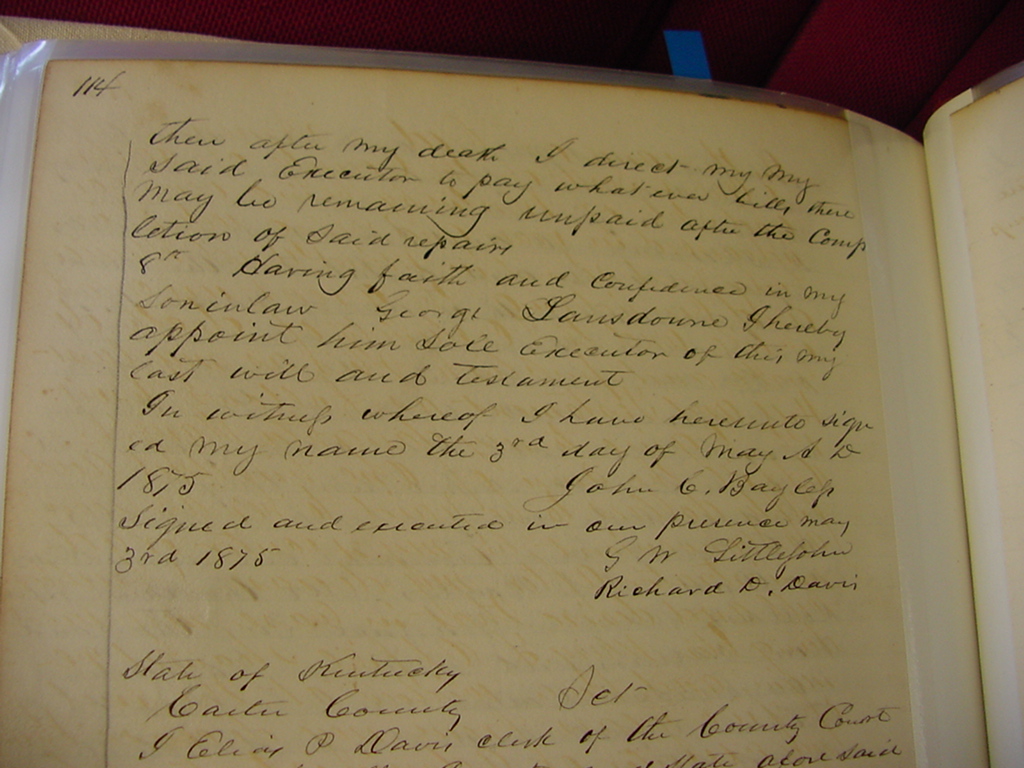 114
then after my death I direct my my
said Executor to pay what ever bills there
may be remaining unpaid after the Comp
letion of said repairs
8th Having faith and Confidence in my
Soninlaw George Lansdowne I hereby
appoint him Sole Executor of this my
last will and testament
In witness whereof I have hereunto sign
ed my name the 3rd day of May A D
1875 John C. Bayless
Signed and executed in our presence may
3rd 1875 G W Littlejohn
Richard D. Davis
State of Kentucky
Carter County Sct
I Elias P Davis clerk of the County Court
and State afore said